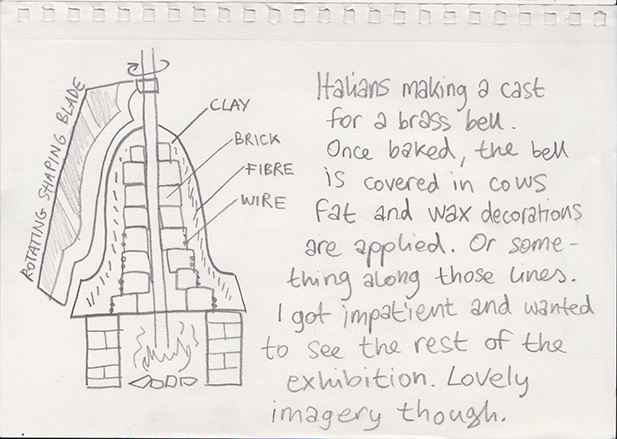 ROTATING SHAPING BLADE
CLAY
BRICK
FIBRE
WIRE
Italians making a cast
for a brass bell.
Once baked, the bell
is covered in cows
fat and wax decorations
are applied. Or some-
thing along those lines.
I got impatient and wanted
to see the rest of the
exhibition. Lovely
imagery though.